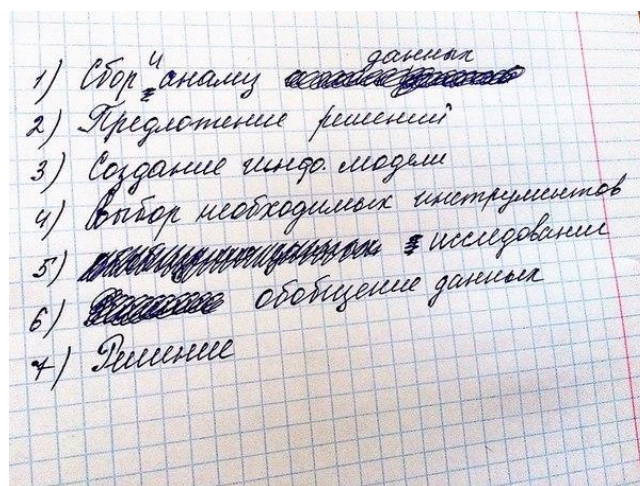 1) Сбор и анализ данных
2) Предложение решений
3) Создание инфо. модели
4) Выбор необходимых инструментов
5) исследование
6) обобщение данных
7) Решение